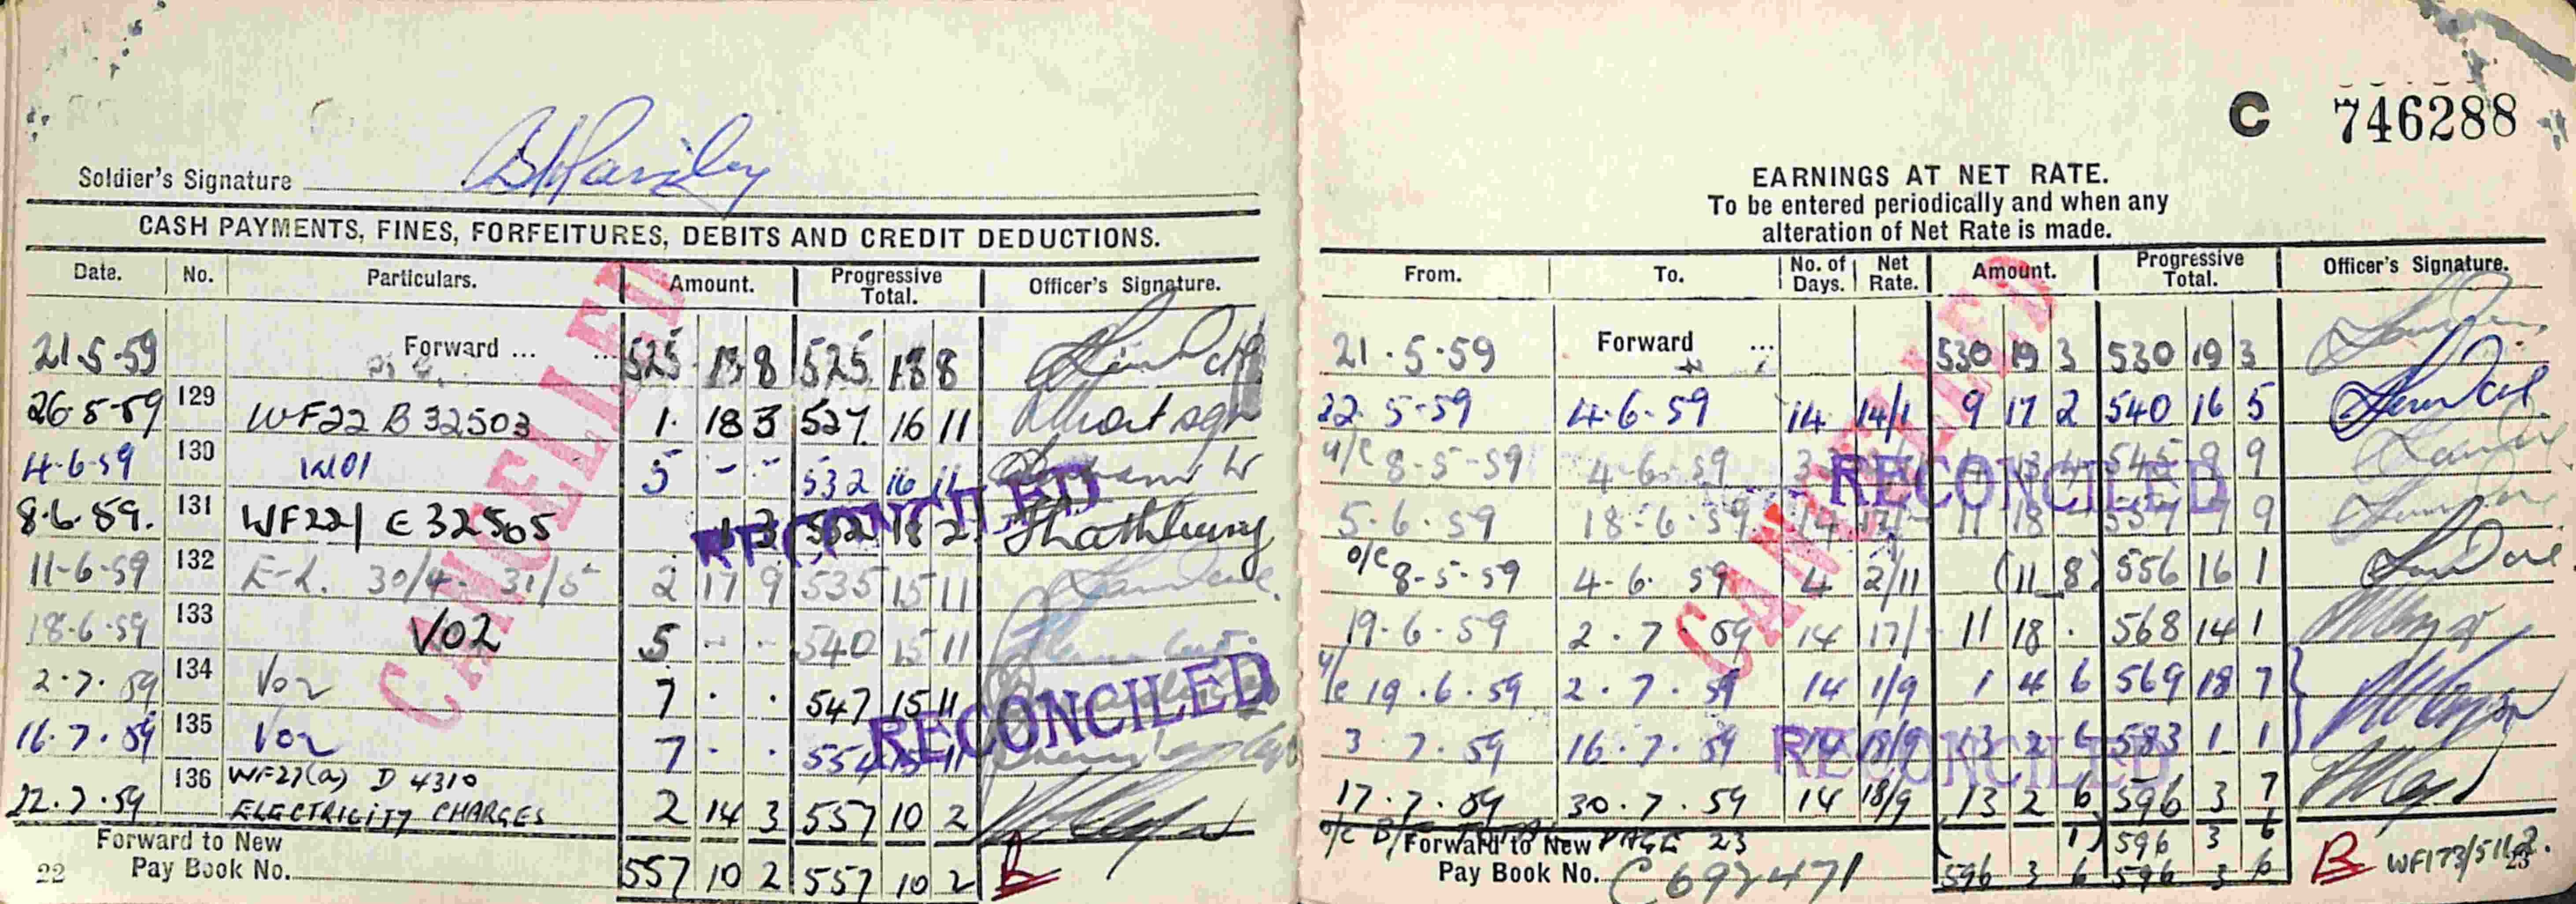 C 746288
Soldier's Signature
CASH PAYMENTS, FINES, FORFEITURES, DEBITS AND CREDIT DEDUCTIONS.
Date. No. Particulars. Amount. Progressive Total. Officer's Signature.
21.5.59 Forward ... ... 525 18 8 525 18 8
26.5.59 129 WF22 B 32503 1. 18 3 527 16 11
4.6.59 130 5 - - 532 16 11
8.6.59. 131 WF22/ E 32505 1 3 532 18 2
11-6-59 132 30/4 - 31/5 2 17 9 535 15 11
18-6-59 133 V02 5 - - 540 15 11
2.7.59 134 V02 7 . . 547 15 11
16.7.59 135 V02 7 . . 554 15 11
22.7.59 136 WF27(a) D 4310
ELECTRICITY CHARGES 2 14 3 557 10 2
Forward to New
Pay Book No. 557 10 2 557 10 2
22
EARNINGS AT NET RATE.
To be entered periodically and when any
alteration of Net Rate is made.
From. To. No. of Days. Net Rate. Amount. Progressive Total. Officer's Signature.
21.5.59 Forward ... 530 19 3 530 19 3
22.5.59 4.6.59 14 14/1 9 17 2 540 16 5
u/c 8-5-59 4-6-59 545 9 9
5.6.59 18-6-59 14 17/- 11 18 - 557 7 9
o/c 8-5-59 4-6-59 4 2/11 (11 8) 556 16 1
19.6.59 2.7.59 14 17/- 11 18 . 568 14 1
u/c 19.6.59 2.7.59 14 1/9 1 4 6 569 18 7
3.7.59 16.7.59 14 18/9 13 2 6 583 1 1
17.7.59 30.7.59 14 18/9 13 2 6 596 3 7
o/c PAGE 23 ( 1) 596 3 6
Forward to New
Pay Book No. C 692471 596 3 6 596 3 6
B WF173/
23
CANCELLED
RECONCILED
RECONCILED
CANCELLED
RECONCILED
RECONCILED